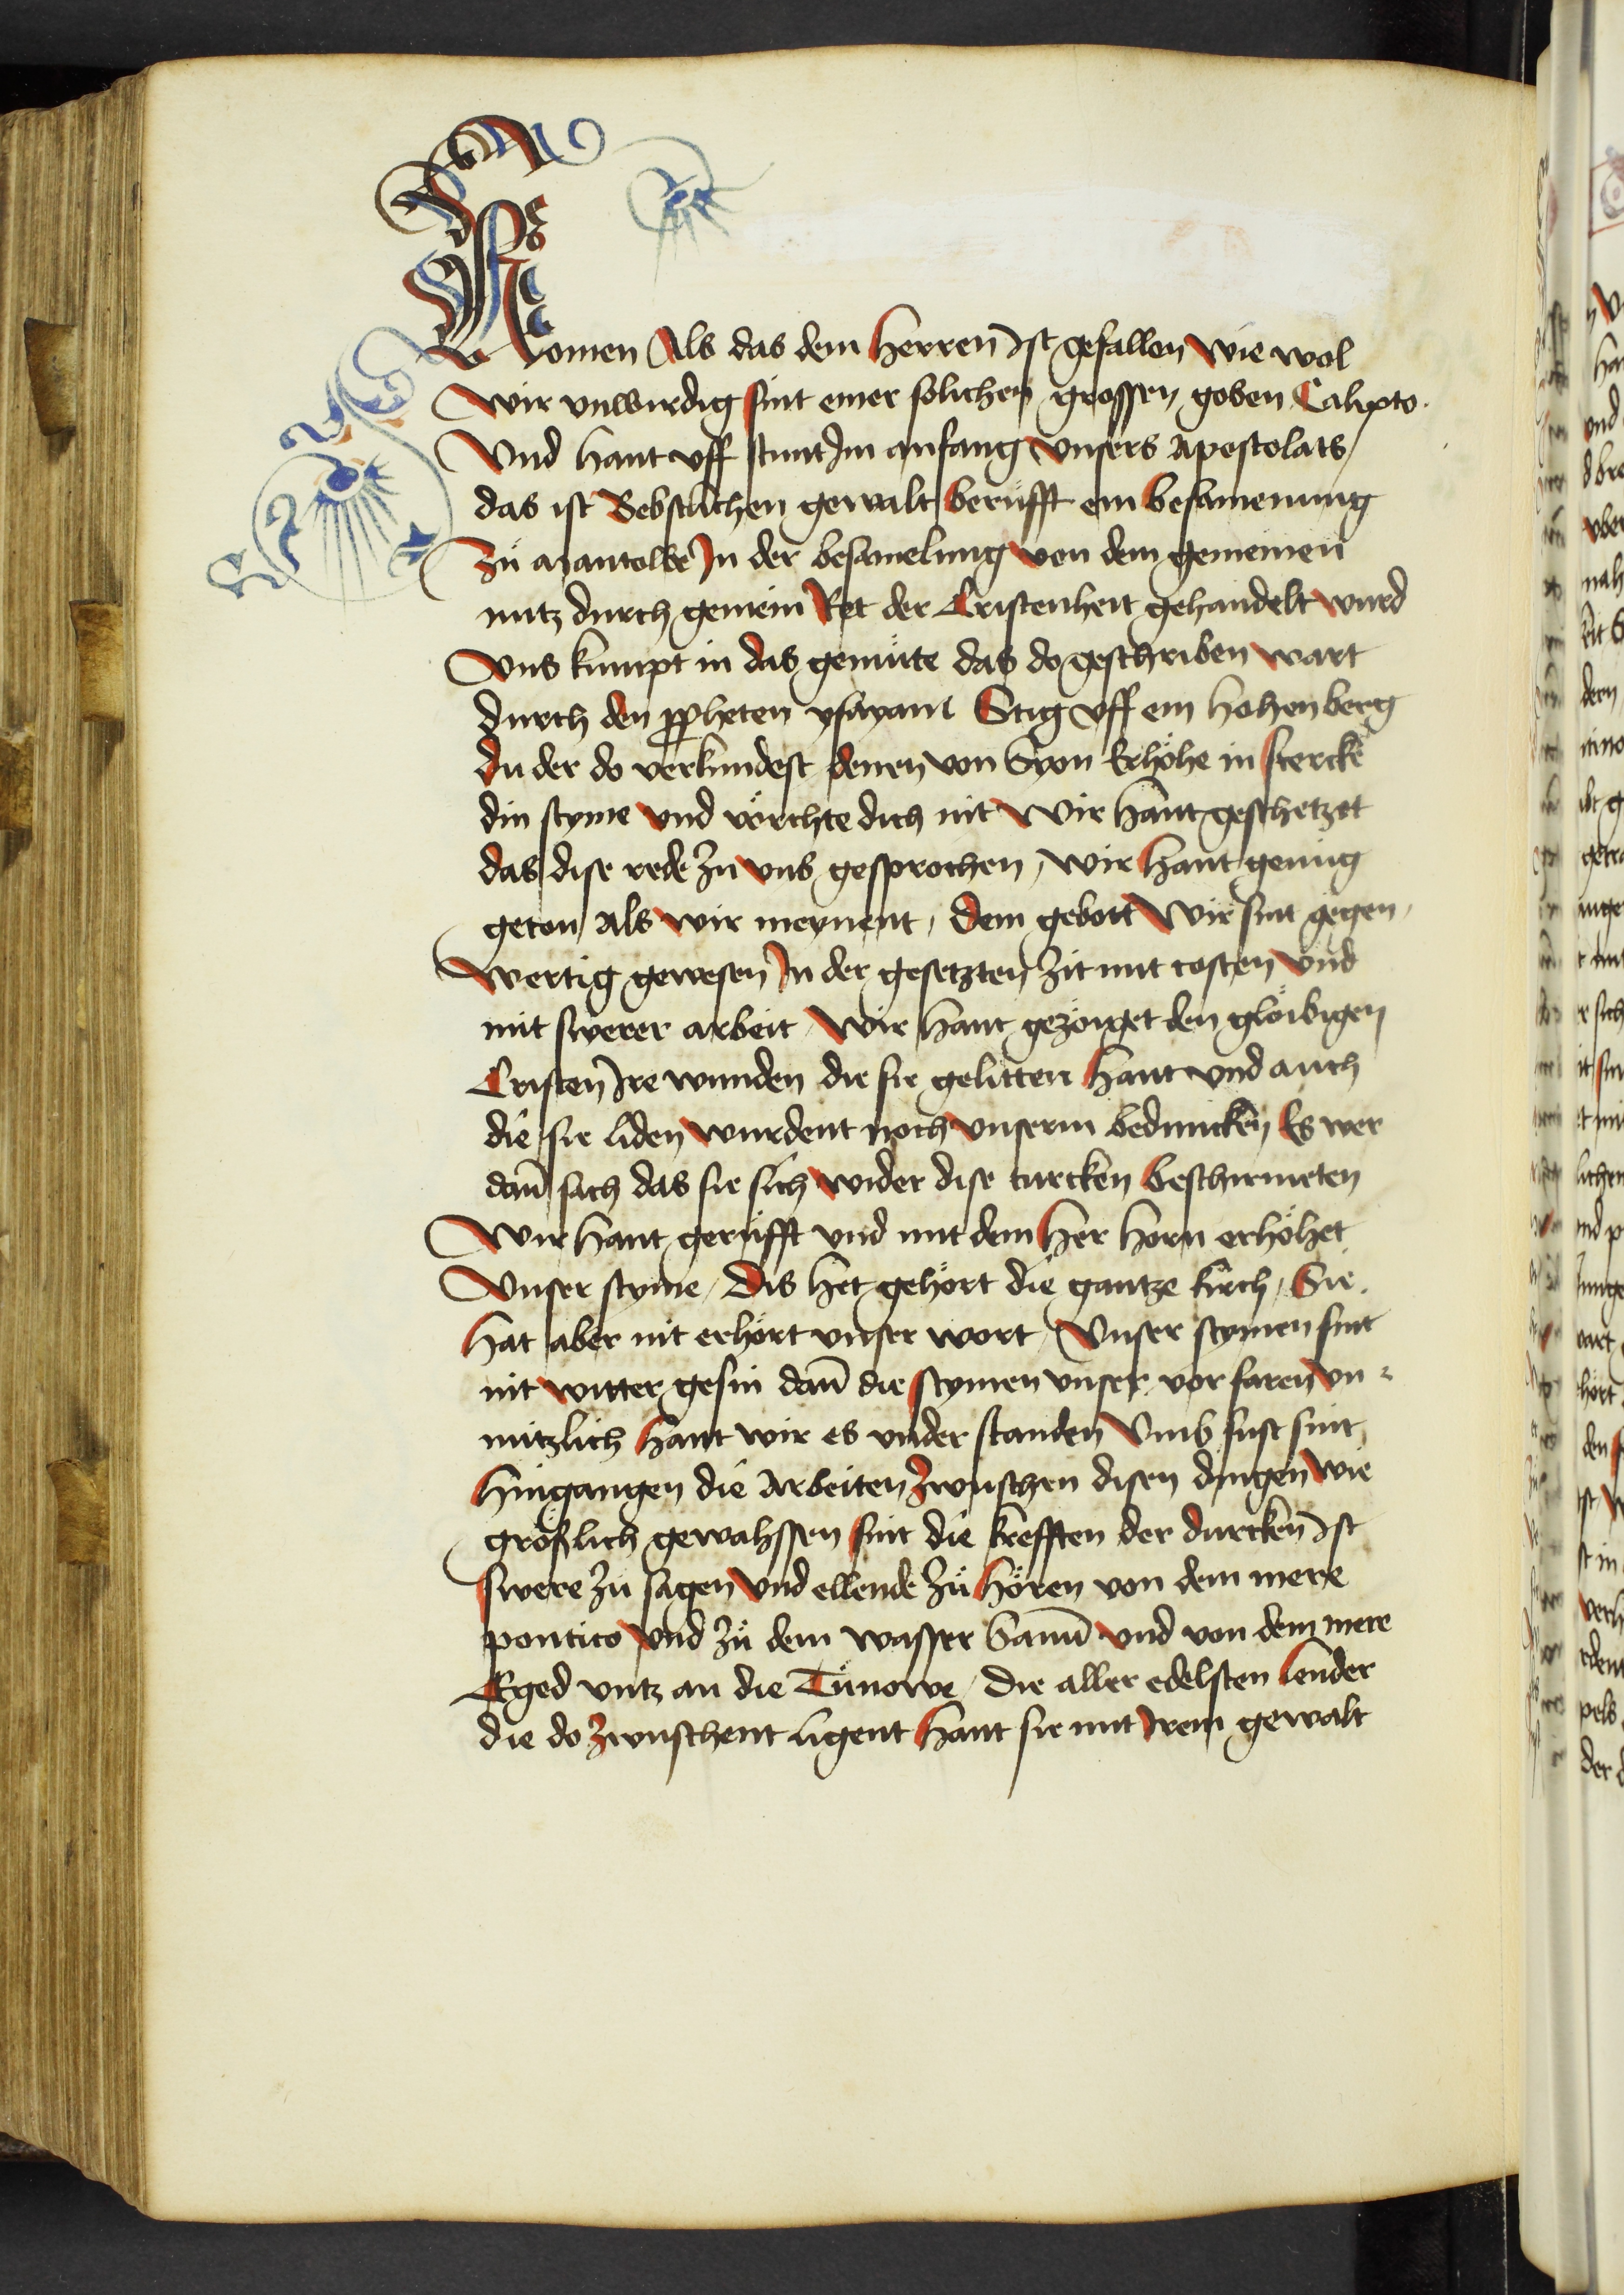 Komen Als das dem herren Ist gefallen wie wol
Wir vnwirdig sint einer solichen grossen goben Calixto.
Vnd hant vff stunt Im anfang vnsers Apostolats,
das ist Bebstlichen gewalt berüfft ein besamenung
Zů Mantowe In der besamelung von dem gemeinen
nutz durch gemein Ret der Cristenheit gehandelt wurd
Vns kumpt in das gemüte das do geschriben wart
durch den ppheten ysayam Stig vff ein hohen berg
du der do verkundest denen von Syon Erhöhe in stercke
din styme vnd vörchte dich nit Wir hant geschetzet
das dise rede zu vns gesprochen, wir hant genüg
geton Als wir meynent, dem gebott Wir sint gegen,
Wertig gewesen In der gesetzten zit mit costen vnd
mit swerer arbeit, Wir hant gezöiget den glöibigen
Cristen Ire wunden die sie gelitten hant vnd auch
die sie liden wurdent noch vnserm beduncken Es wer
dañ sach das sie sich wider dise turcken beschirmeten
Wir hant gerüfft vnd mit dem her horn erhöhet
Vnser styme, Dis het gehört die gantze kirch, Sie
hat aber nit erhört vnser wort, Vnser stymen sint
nit witter gesin dañ die stymen vnser vor faren vn-
nützlich hant wir es vnder standen Vmb sust sint
hingangen die Arbeiten zwuschen disen dingen wie
größlich gewahssen sint die krefften der durcken Ist
swere zů sagen Vnd ellende zů hören von dem mere
pontico vnd zů dem wasser Sanuͥ vnd von dem mere
Eged vntz an die Tünowe, die aller edelsten lender
die do zwuschent ligent hant sie mit Irem gewalt